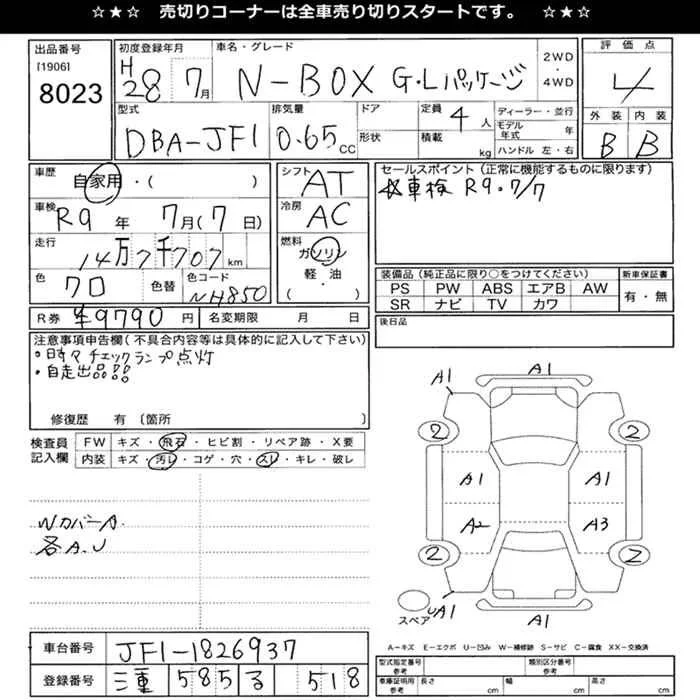 ☆★☆ 売切りコーナーは全車売り切りスタートです。 ☆★☆
出品番号
[1906]
8023
初度登録年月
H28 7月
車名・グレード
N-BOX G・Lパッケージ
2WD
・
4WD
評価点
4
外装 内装
B B
型式
DBA-JF1
排気量
0.65 CC
ドア
形状
定員 4 人
積載 kg
ディーラー・並行
モデル年式 年
ハンドル 左・右
車歴
自家用・( )
車検
R9 年 7月(7日)
走行
14万7千707 km
色
クロ
色替
色コード
NH850
シフト
AT
冷房
AC
燃料
ガソリン
軽・油
( ・ )
セールスポイント(正常に機能するものに限ります)
車検 R9.7/7
装備品(純正品に限り○をつけてください)
PS PW ABS エアB AW
SR ナビ TV カワ
新車保証書
有・無
後日品
R券 ¥9790 円
名変期限 月 日
注意事項申告欄(不具合内容等は具体的に記入して下さい)
・時々チェックランプ点灯
・自走出品!!
修復歴 有〔箇所 〕
検査員
記入欄
FW キズ・飛石・ヒビ割・リペア跡・X要
内装 キズ・汚レ・コゲ・穴・スレ・キレ・破レ
WカバーA
各A.U
A1
A1
2
2
A1
A1
A2
A3
2
2
スペア
UA1
A1
A-キズ E-エクボ U-凹み W-補修跡 S-サビ C-腐食 XX-交換済
車台番号
JF1-1826937
登録番号
三重 585 る 518
型式指定番号
参考
類別区分番号
参考
車庫証明用
参考
長さ cm
幅 cm
高さ cm